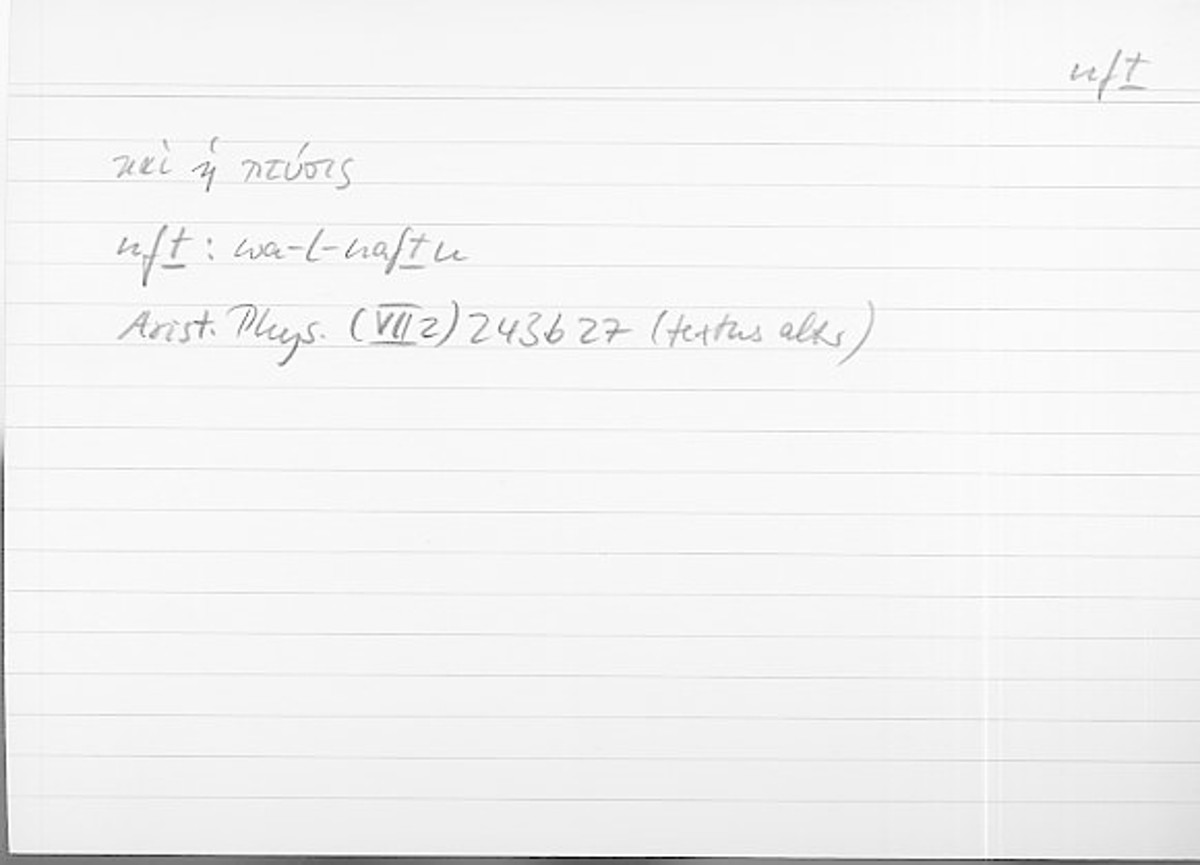 nfṯ
καὶ ἡ πτύσις
nfṯ : wa-l-nafṯu
Arist. Phys. (VII 2) 243b 27 (textus alter)